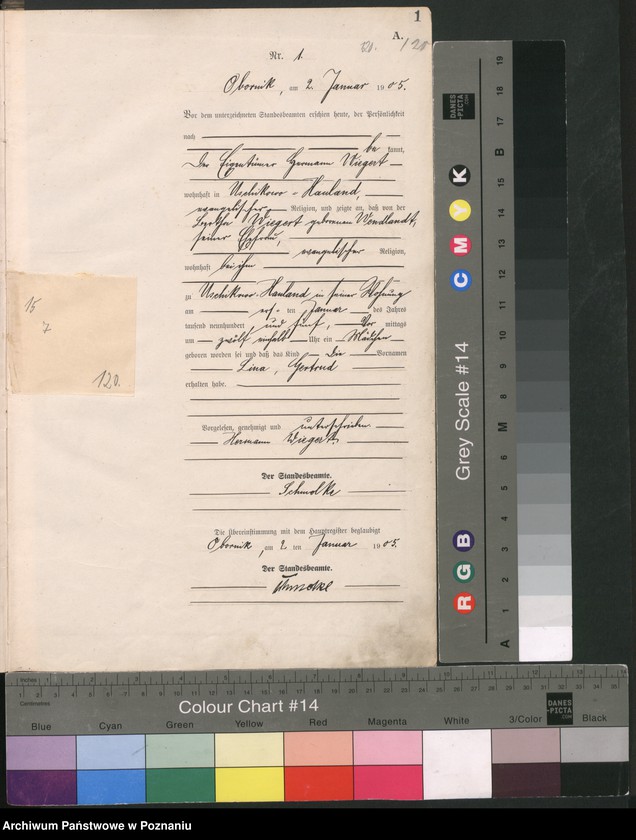 1
A.
120.
Nr. 1.
Obornik, am 2. Januar 1905.
Vor dem unterzeichneten Standesbeamten erschien heute, der Persönlichkeit
nach
be kannt,
Der Eigentümer Hermann Wiegert
wohnhaft in Uschikowo-Hauland,
evangelischer Religion, und zeigte an, daß von der
Wiegert geborenen Wendlandt,
seiner Ehefrau,
evangelischer Religion,
wohnhaft bei ihm
zu Uschikowo-Hauland in seiner Wohnung
am ten Januar des Jahres
tausend neunhundert und fünf, Vor mittags
um zwölf einhalb Uhr ein Mädchen
geboren worden sei und daß das Kind die Vornamen
Lina, Gertrud
erhalten habe.
Vorgelesen, genehmigt und unterschrieben
Hermann Wiegert.
Der Standesbeamte.
Schmolke
Die Übereinstimmung mit dem Hauptregister beglaubigt
Obornik, am 2 ten Januar 1905.
Der Standesbeamte.
Schmolke
15
7
120.
DANES
-PICTA
.COM
Grey Scale #14
R G B C M Y K
A 1 2 3 4 5 6 M 8 9 10 11 12 13 14 15 B 17 18 19
Inches
Centimetres
Colour Chart #14
DANES
-PICTA
.COM
Blue Cyan Green Yellow Red Magenta White 3/Color Black
Archiwum Państwowe w Poznaniu